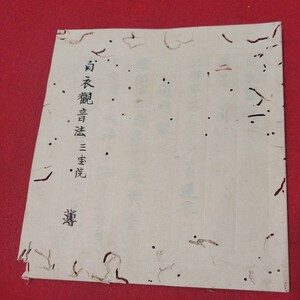 二
白衣觀音法 三宝院
薄